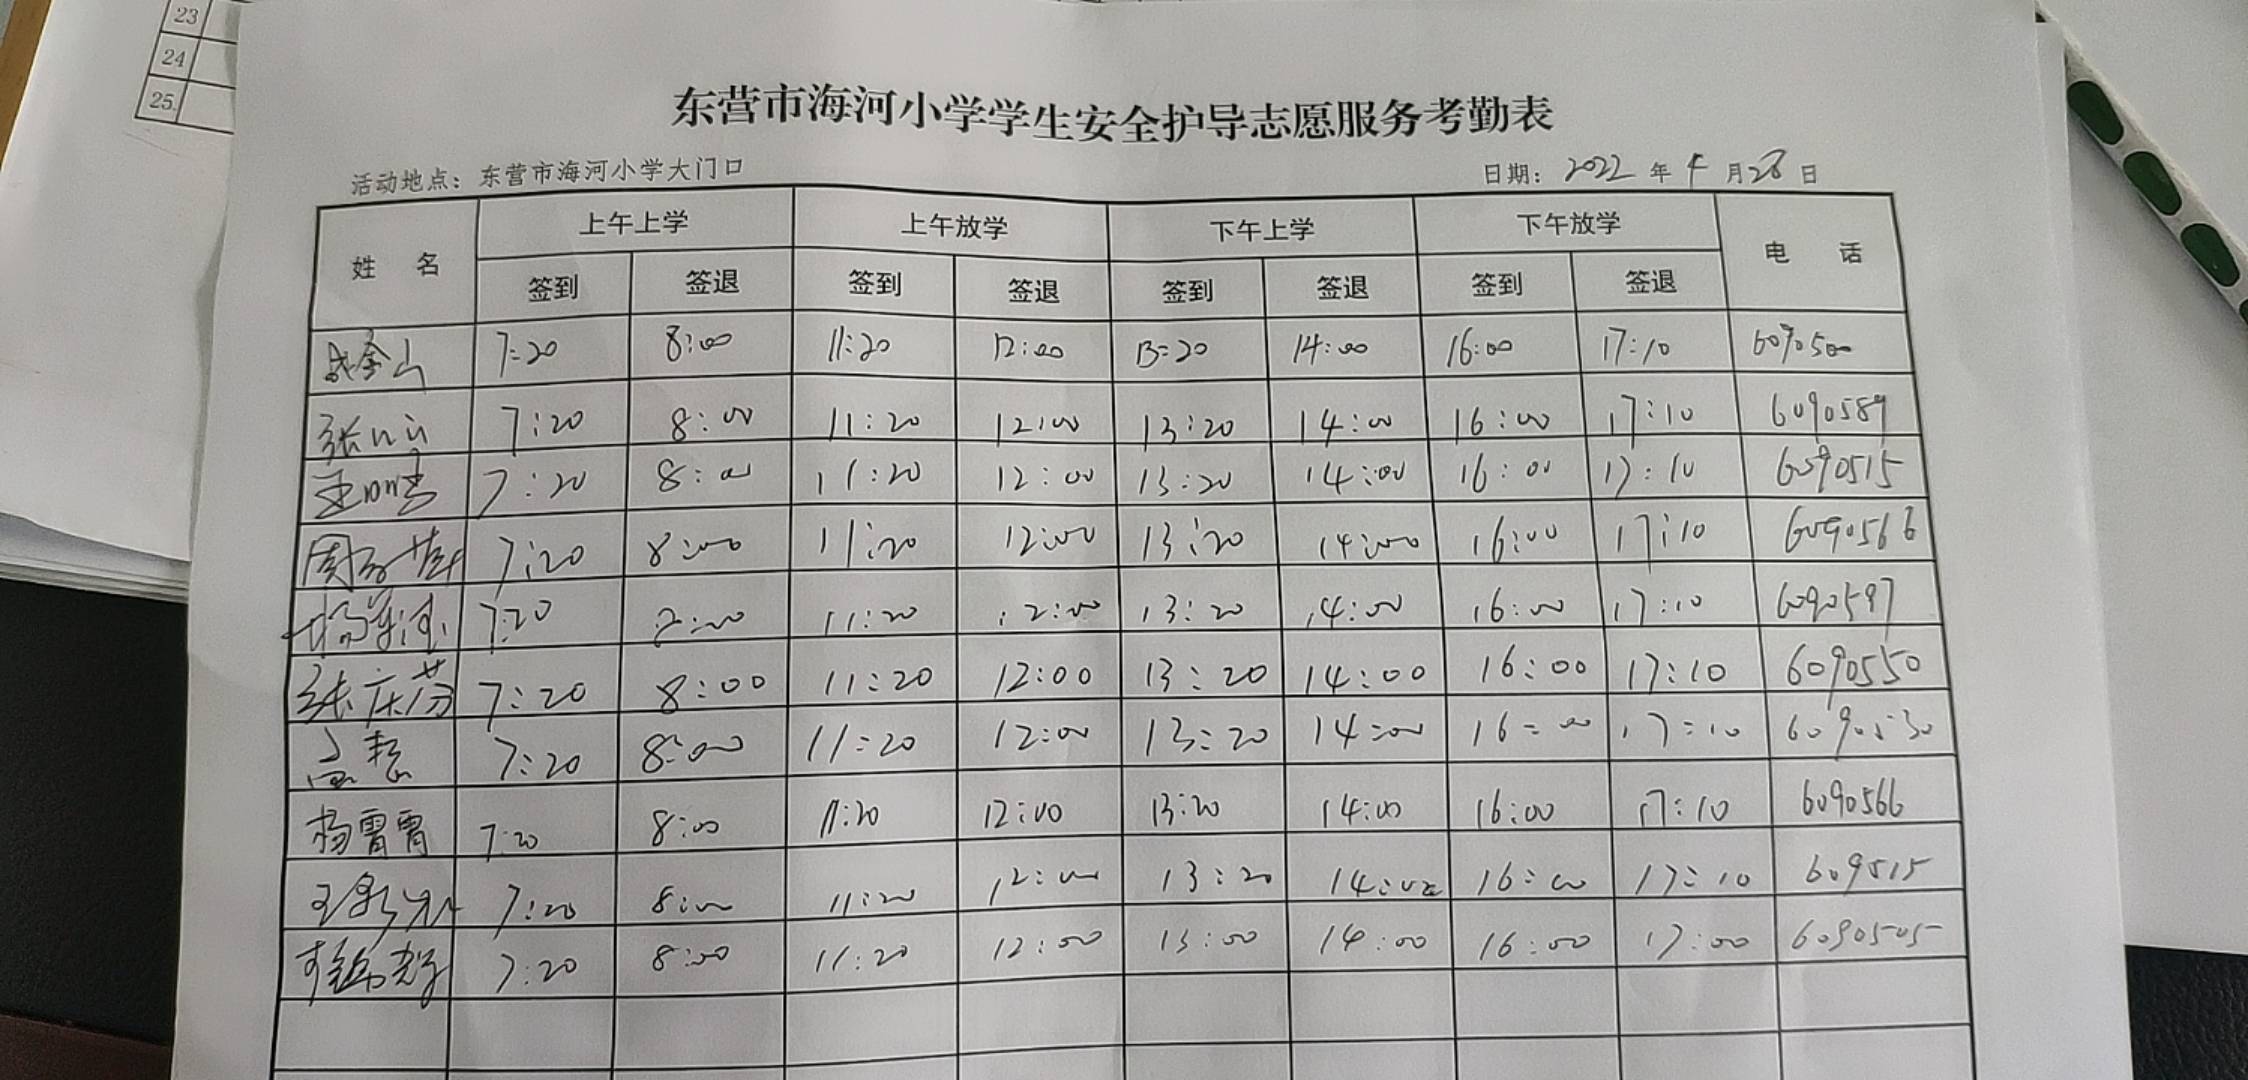 23
24
25.
东营市海河小学学生安全护导志愿服务考勤表
活动地点：东营市海河小学大门口 日期：2022 年 4 月 28 日
姓 名 上午上学 上午放学 下午上学 下午放学 电 话
签到 签退 签到 签退 签到 签退 签到 签退
金山 7:20 8:00 11:20 12:00 13:20 14:00 16:00 17:10 6090500
张 7:20 8:00 11:20 12:00 13:20 14:00 16:00 17:10 6090589
7:20 8:00 11:20 12:00 13:20 14:00 16:00 17:10 6090515
周 7:20 8:00 11:20 12:00 13:20 14:00 16:00 17:10 6090566
杨 7:20 8:00 11:20 12:00 13:20 14:00 16:00 17:10 6090597
张庆芬 7:20 8:00 11:20 12:00 13:20 14:00 16:00 17:10 6090550
高 7:20 8:00 11:20 12:00 13:20 14:00 16:00 17:10 6090530
杨霄霄 7:20 8:00 11:20 12:00 13:20 14:00 16:00 17:10 6090566
王 7:20 8:00 11:20 12:00 13:20 14:00 16:00 17:10 609515
7:20 8:00 11:20 12:00 13:00 14:00 16:00 17:00 6090505